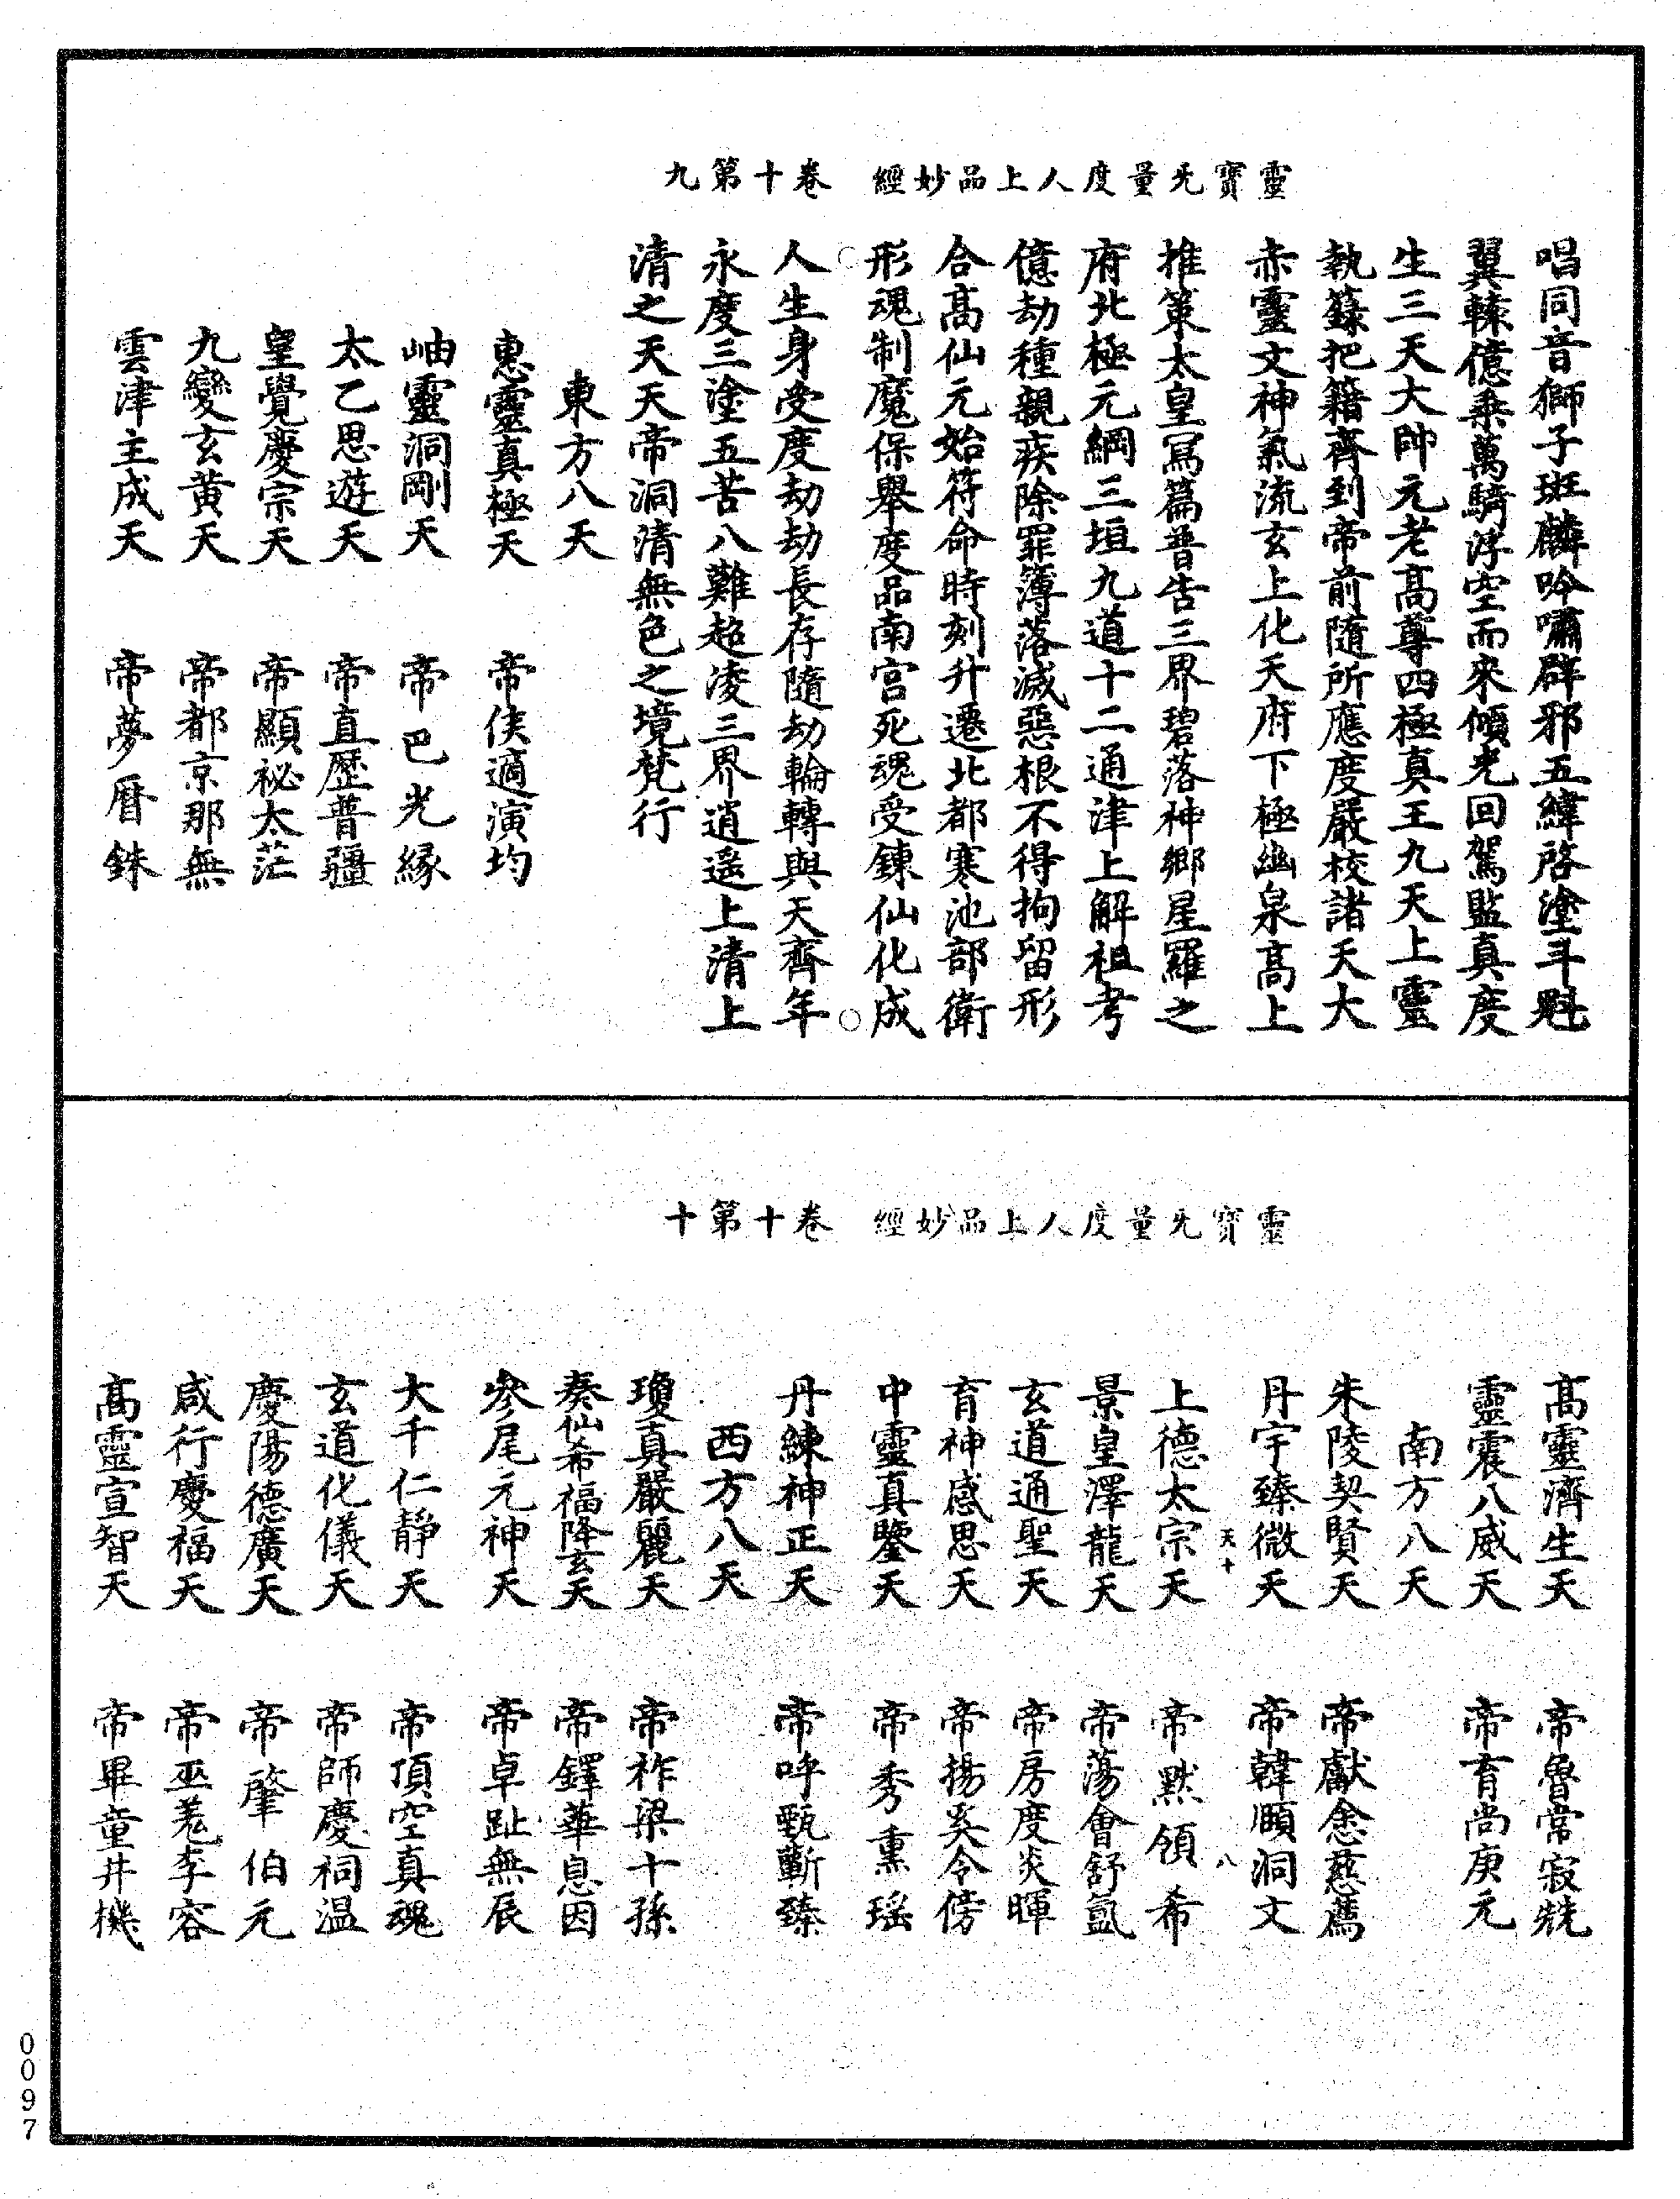 靈寶无量度人上品妙經　卷十第九
唱同音獅子斑麟吟嘯辟邪五緯啓塗斗魁
翼轅億乘萬騎浮空而來傾光回駕監真度
生三天大帥元老高尊四極真王九天上靈
執籙把籍齊到帝前隨所應度嚴校諸天大
赤靈文神氣流玄上化天府下極幽泉高上
推策太皇寫篇普告三界碧落神鄉星羅之
府北極元綱三垣九道十二通津上解祖考
億劫種親疾除罪簿落滅惡根不得拘留形
合高仙元始符命時刻升遷北都寒池部衛
形魂制魔保舉度品南宮死魂受鍊仙化成
人生身受度劫劫長存隨劫輪轉與天齊年
永度三塗五苦八難超淩三界逍遙上清上
清之天天帝洞清無色之境梵行
東方八天
惠靈真極天　帝侯適演均
岫靈洞剛天　帝巴光緣
太乙思遊天　帝直歷普疆
皇覺慶宗天　帝顯祕太茫
九變玄黃天　帝都京那無
雲津主成天　帝夢曆銖
靈寶无量度人上品妙經　卷十第十
高靈濟生天　帝魯常寂兟
靈震八威天　帝育尚庚元
南方八天
朱陵契賢天　帝獻悆慈薦
丹宇臻微天　帝韓顺洞文
天十　八
上德太宗天　帝默領希
景皇澤龍天　帝蕩會舒氤
玄道通聖天　帝房度炎暉
育神感思天　帝揚奚令傍
中靈真鑒天　帝秀熏瑤
丹練神正天　帝呼甄蘄臻
西方八天
瓊真嚴麗天　帝祚梁十孫
奏仙希福降玄天　帝鐸華息因
參尾元神天　帝卓趾無辰
大千仁靜天　帝頂空真魂
玄道化儀天　帝師慶祠温
慶陽德廣天　帝肇伯元
咸行慶福天　帝巫羗李容
高靈宣智天　帝畢童井機
0097